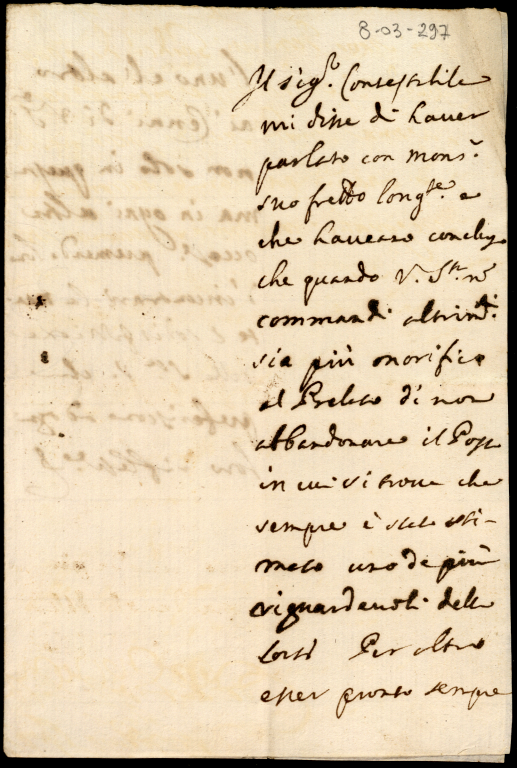 8-03-297
Il sig.r Contestabile
mi disse di haver
parlato con mons.r
suo frello long.te e
che haveano concluso
che quando V. S.tà nō
commandi altrim.ti
sia più onorifico
al Prelato di non
abbandonare il Posto
in cui si trova che
sempre è stato sti-
mato uno de più
riguardevoli della
Corte Per altro
esser pronto sempre